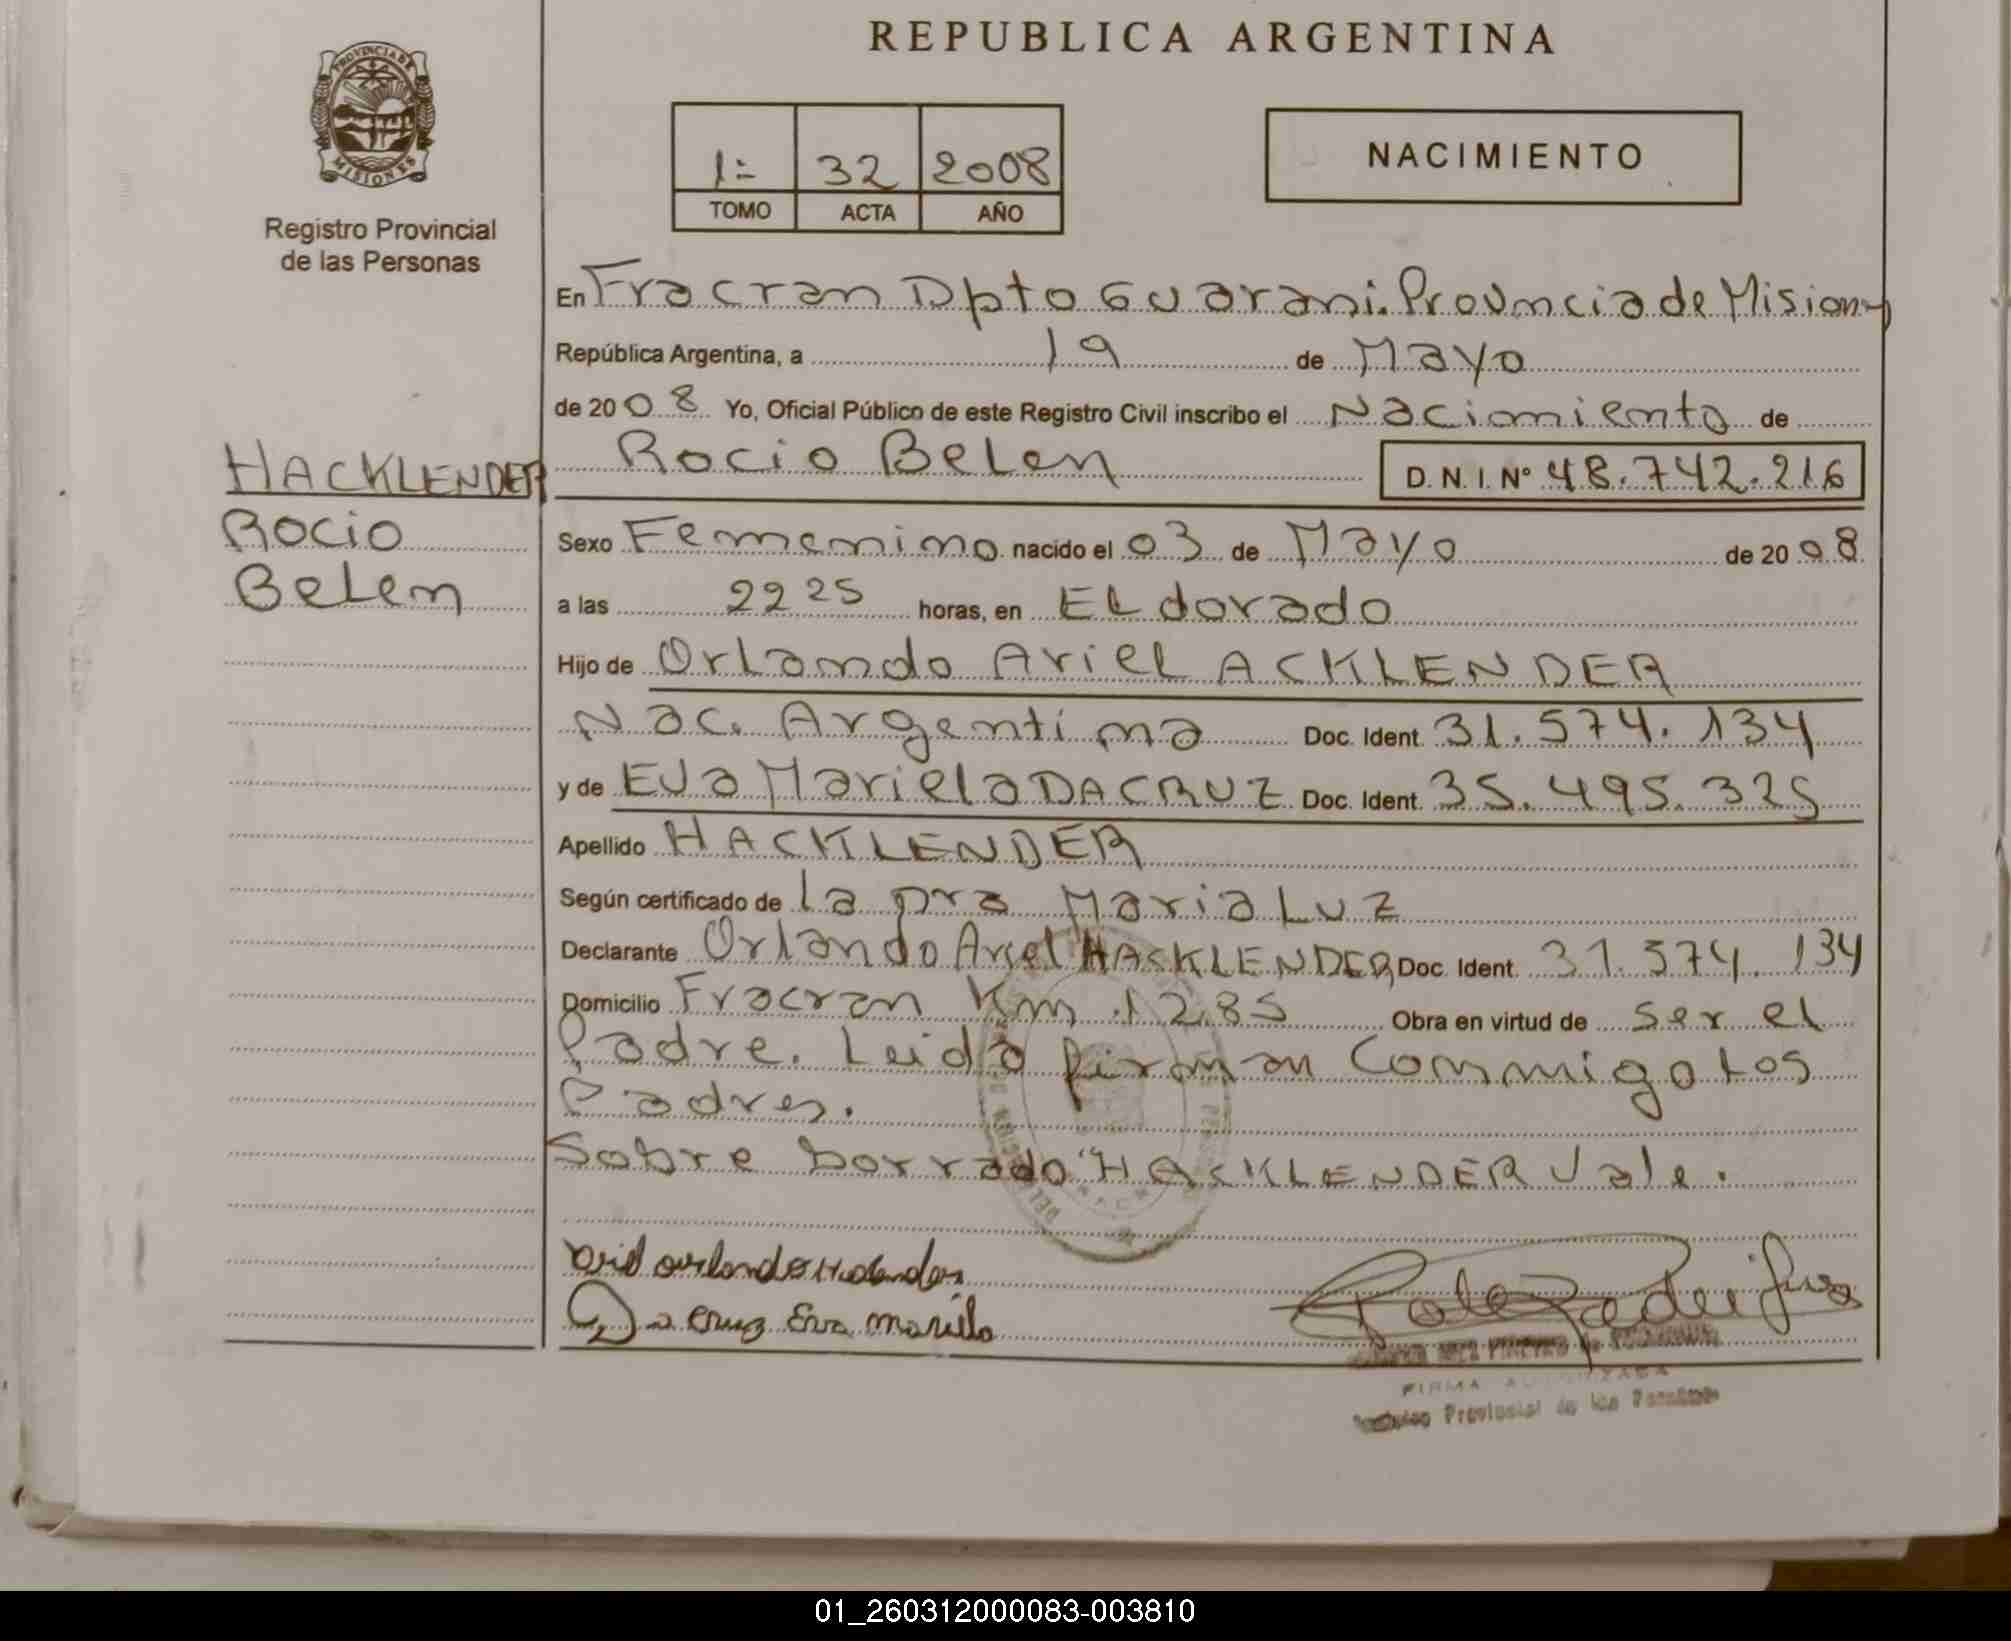 REPUBLICA ARGENTINA
PROVINCIA DE MISIONES
Registro Provincial
de las Personas
1= 32 2008
TOMO ACTA AÑO
NACIMIENTO
En Fracran Dpto Guarani. Provincia de Misiones
República Argentina, a 19 de Mayo
de 2008 Yo, Oficial Público de este Registro Civil inscribo el Nacimiento de
HACKLENDER
Rocio
Belen
Rocio Belen D.N.I. Nº 48.742.216
Sexo Femenino nacido el 03 de Mayo de 2008
a las 22 25 horas, en ELdorado
Hijo de Orlando Ariel ACKLENDER
Nac. Argentina Doc. Ident. 31.574.134
y de Eva Mariela DACRUZ Doc. Ident. 35.495.325
Apellido HACKLENDER
Según certificado de la Dra Maria Luz
Declarante Orlando Ariel HACKLENDER Doc. Ident. 31.574.134
Domicilio Fracran Km 1285 Obra en virtud de ser el
Padre. Leida firman Conmigo los
Padres.
Sobre borrado "HACKLENDER Vale.
orlando
Da Cruz Eva
FIRMA AUTORIZADA
Provincial de las Personas
01_260312000083-003810